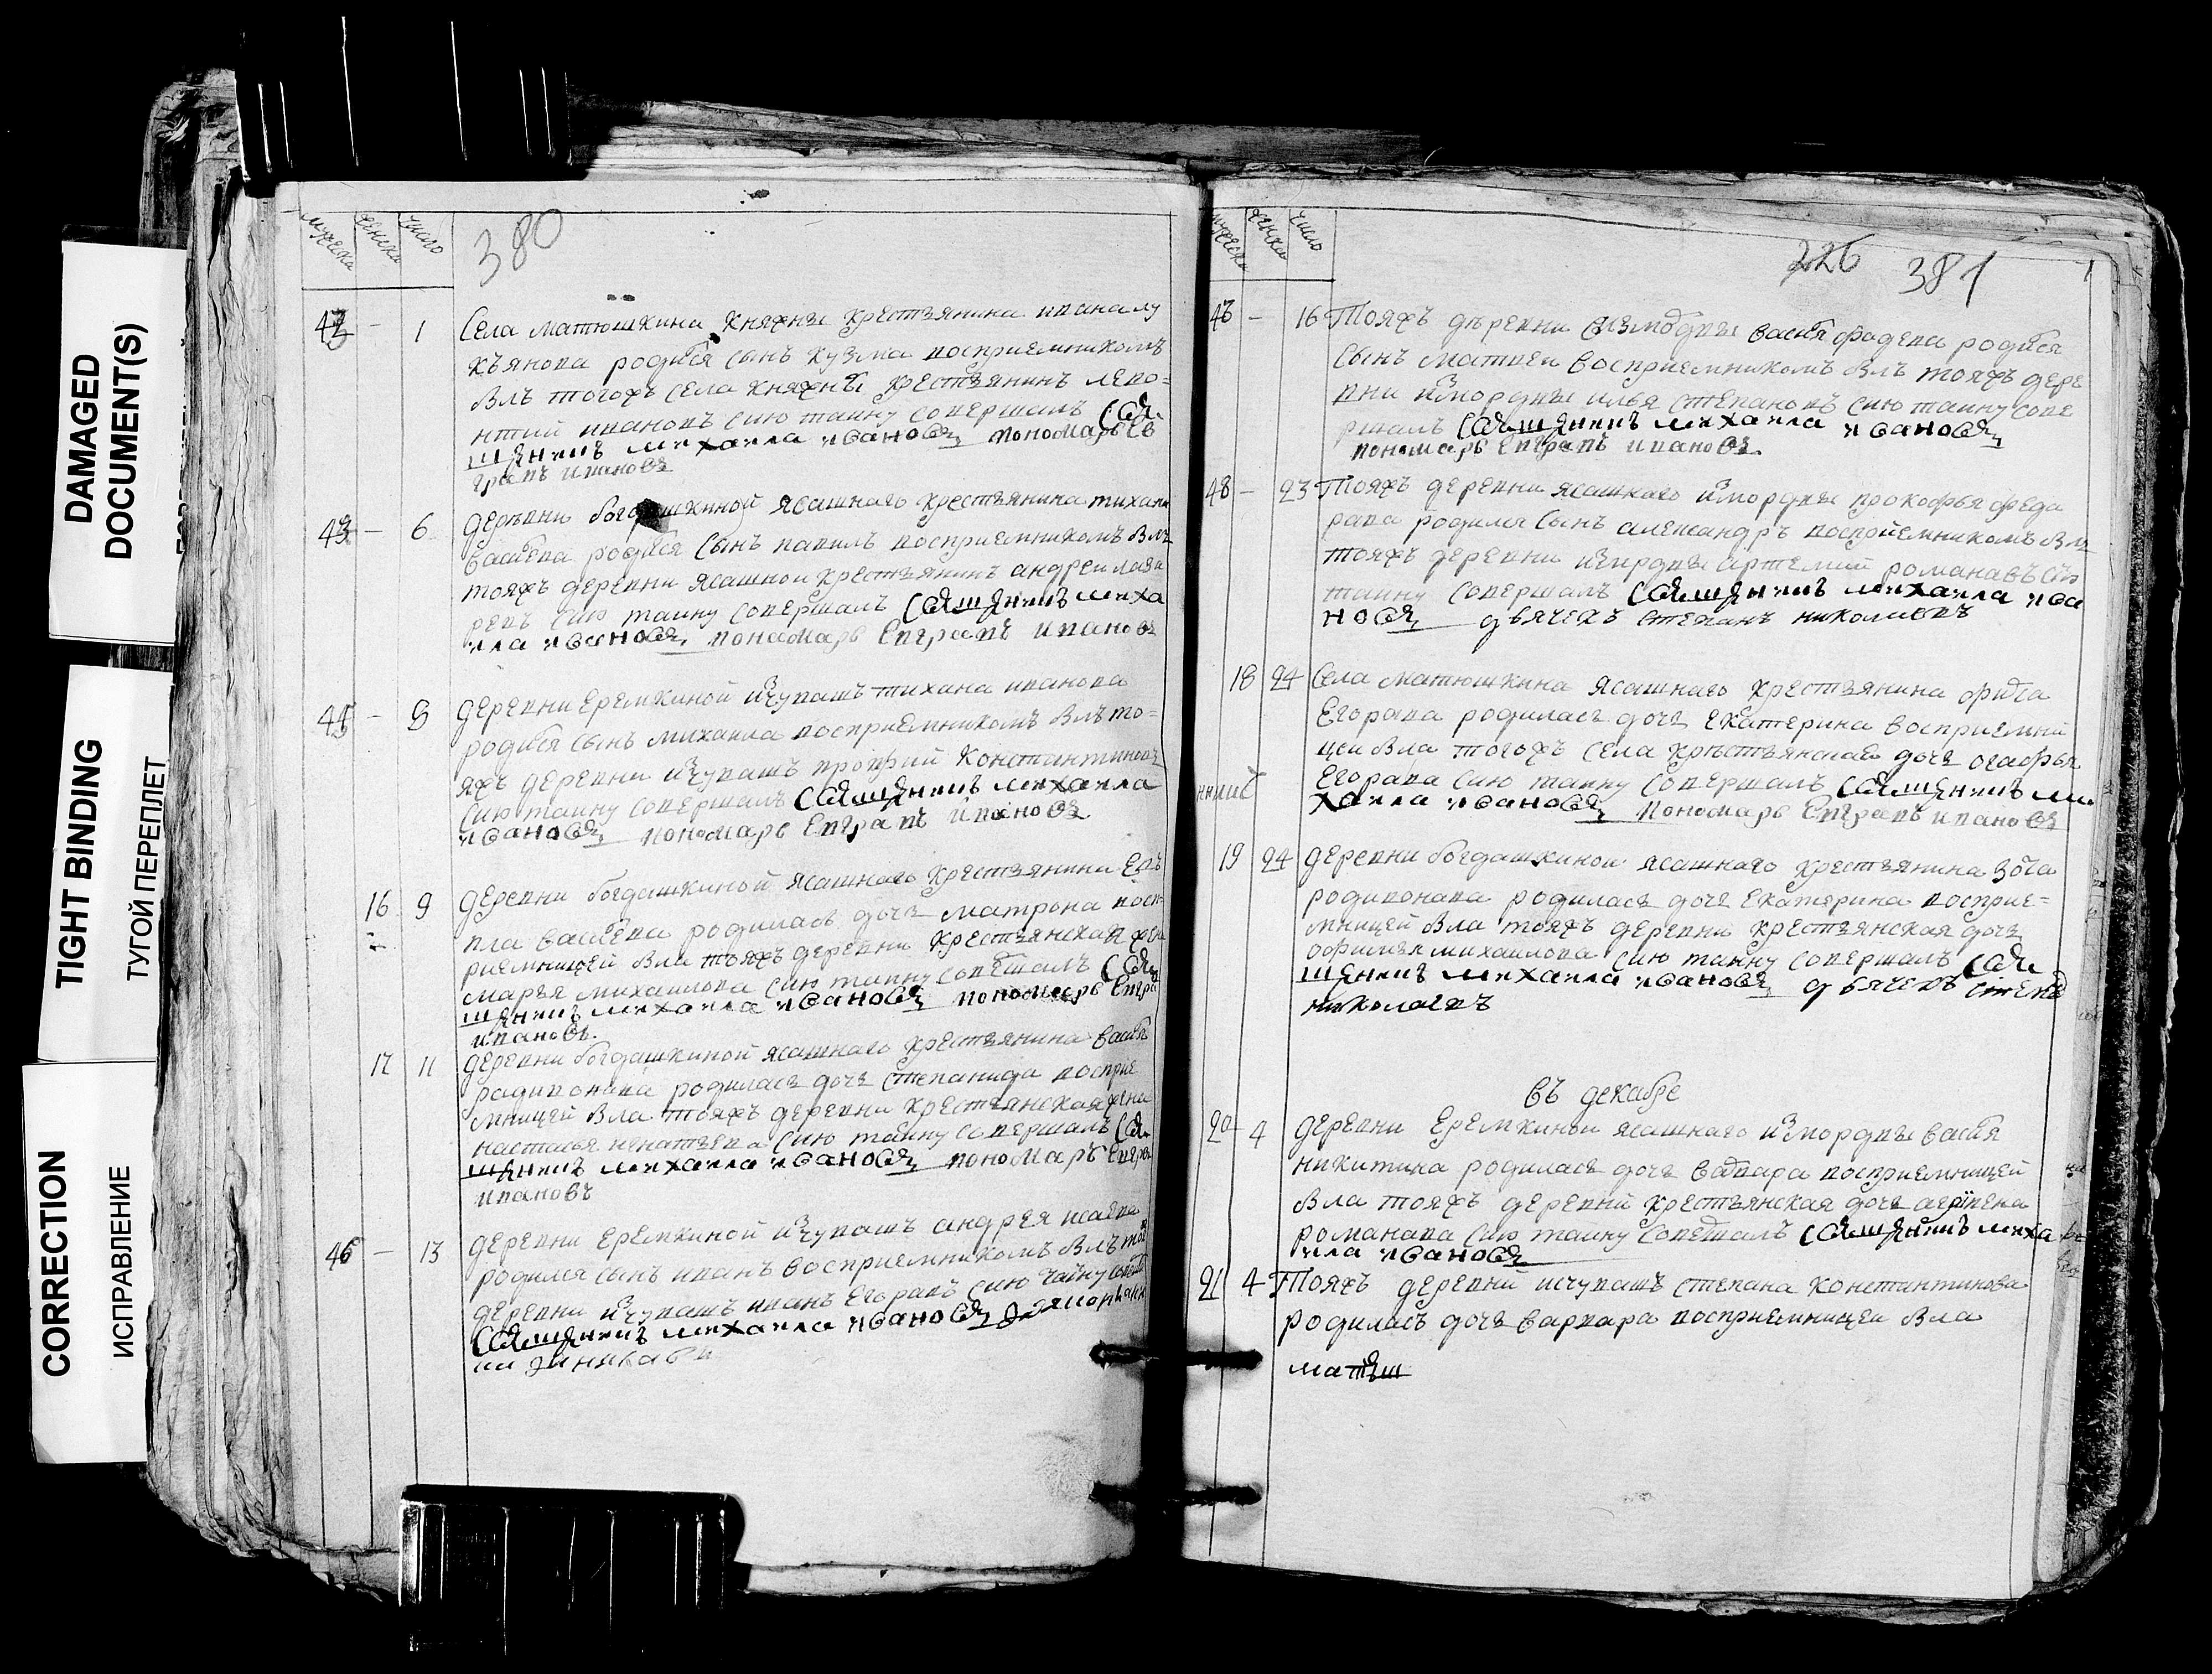 DAMAGED
DOCUMENT(S)
TIGHT BINDING
ТУГОЙ ПЕРЕПЛЕТ
CORRECTION
ИСПРАВЛЕНИЕ
мужеска женска число
380
1 Села матюшкина княжне крестъянина ивана лу
къянова родился сынъ кузма восприемникомъ
былъ тогожъ села княжне крестъянинъ лево=
нтий ивановъ сию таину совершалъ свя
щенникъ михаила ивановъ пономарь ев
грапъ ивановъ
6 деревни богдашкиной ясашнаго крестъянина тихана
васильева родился сынъ павилъ восприемникомъ былъ
тояжъ деревни ясашной крестъянинъ андреи лаза
ревъ сию таину совершалъ священникъ миха
ила ивановъ пономарь евграпъ ивановъ
8 деревни еремкиной изчувашъ тихана иванова
родился сынъ михаила восприемникомъ былъ то=
яжъ деревни изчувашъ Константиновъ
сию таину совершалъ священникъ михаила
ивановъ пономарь евграпъ ивановъ
16 9 деревни богдашкиной ясашнаго крестъянина
васильева родилась дочь матрона восп
риемницей была тояжъ деревни крестъянская жена
марья михаилова сию таину совершалъ свя
щенникъ михаила ивановъ пономарь евгра
ивановъ.
17 11 деревни богдашкиной ясашнаго крестъянина василья
радивонова родилась дочь степанида восприе
мницей была тояжъ деревни крестъянская жена
настасья игнатьева сию таину совершалъ свя
щенникъ михаила ивановъ пономарь евграп
ивановъ
46 — 13 деревни еремкиной изчувашъ андрея исаева
родился сынъ иванъ восприемникомъ былъ тоя
деревни изчувашъ иванъ егоравъ сию
священникъ михаила ивановъ
мужеска женска число
226 381
16 Тояжъ деревни васился фадева родился
сынъ матвеи восприемникомъ былъ тояжъ дере
вни измордвы илья степановъ сию таину сове
ршалъ священникъ михаила ивановъ
пономарь евграпъ ивановъ.
48 — 23 Тояжъ деревни ясашнаго измордвы прокофья феда
рава родился сынъ александръ восприемникомъ былъ
тояжъ деревни измордвы артемий романавъ сию
таину совершалъ священникъ михаила ива
новъ дьячекъ степанъ николаевъ
18 24 Села матюшкина ясашнаго крестъянина
Егорава родилась дочь екатерина восприемни
цеи была тогожъ села дочь огафья
Егорава сию таину совершалъ священникъ ми
хаила ивановъ пономарь евграпъ ивановъ
19 24 деревни богдашкинои ясашнаго крестъянина
родивонава родилась дочь екатерина восприе=
мницей была тояжъ деревни крестъянская дочь
офимья михаилова сию таину совершалъ свя
щенникъ михаила ивановъ дьячекъ степанъ
николаевъ
въ декабре
20 4 деревни Еремкинои ясашнаго измордвы василя
никитина родилась дочь варвара восприемницей
была тояжъ деревни крестъянская дочь агрипена
романава сию таину совершалъ священникъ миха
ила ивановъ
21 4 Тояжъ деревни исчувашъ степана константинова
родилась дочь варвара восприемницеи была